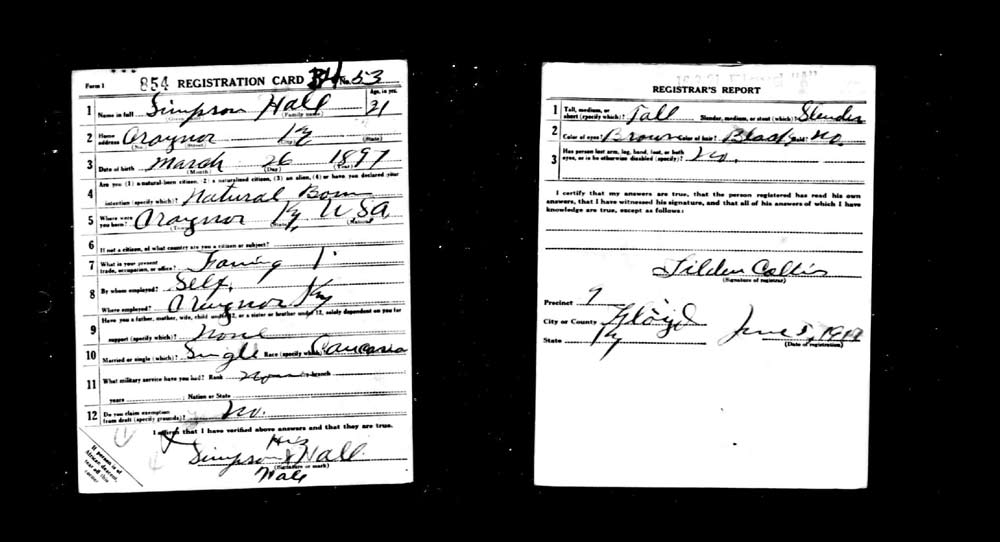 Form 1 854 REGISTRATION CARD No. 53
1 Name in full Simpson Hall Age, in yrs. 21
(Given name) (Family name)
2 Home address Craynor Ky
(No.) (Street) (City) (State)
3 Date of birth March 26 1897
(Month) (Day) (Year)
4 Are you (1) a natural-born citizen, (2) a naturalized citizen, (3) an alien, (4) or have you declared your
intention (specify which)? Natural Born
5 Where were you born? Craynor Ky USA
(Town) (State) (Nation)
6 If not a citizen, of what country are you a citizen or subject?
7 What is your present trade, occupation, or office? Faming
8 By whom employed? Self
Where employed? Craynor Ky
9 Have you a father, mother, wife, child under 12, or a sister or brother under 12, solely dependent on you for
support (specify which)? None
10 Married or single (which)? Single Race (specify which)? Caucasia
11 What military service have you had? Rank branch
years ; Nation or State
12 Do you claim exemption from draft (specify grounds)? No.
I affirm that I have verified above answers and that they are true.
His
Simpson X Hall
(Signature or mark)
If person is of African descent, tear off this corner
REGISTRAR'S REPORT
1 Tall, medium, or short (specify which)? Tall Slender, medium, or stout (which)? Slender
2 Color of eyes? Brown Color of hair? Black Bald? No.
3 Has person lost arm, leg, hand, foot, or both eyes, or is he otherwise disabled (specify)? No.
I certify that my answers are true, that the person registered has read his own
answers, that I have witnessed his signature, and that all of his answers of which I have
knowledge are true, except as follows:
Tilden Collis
(Signature of registrar)
Precinct 9
City or County Floyd
State Ky
June 5, 1917
(Date of registration)